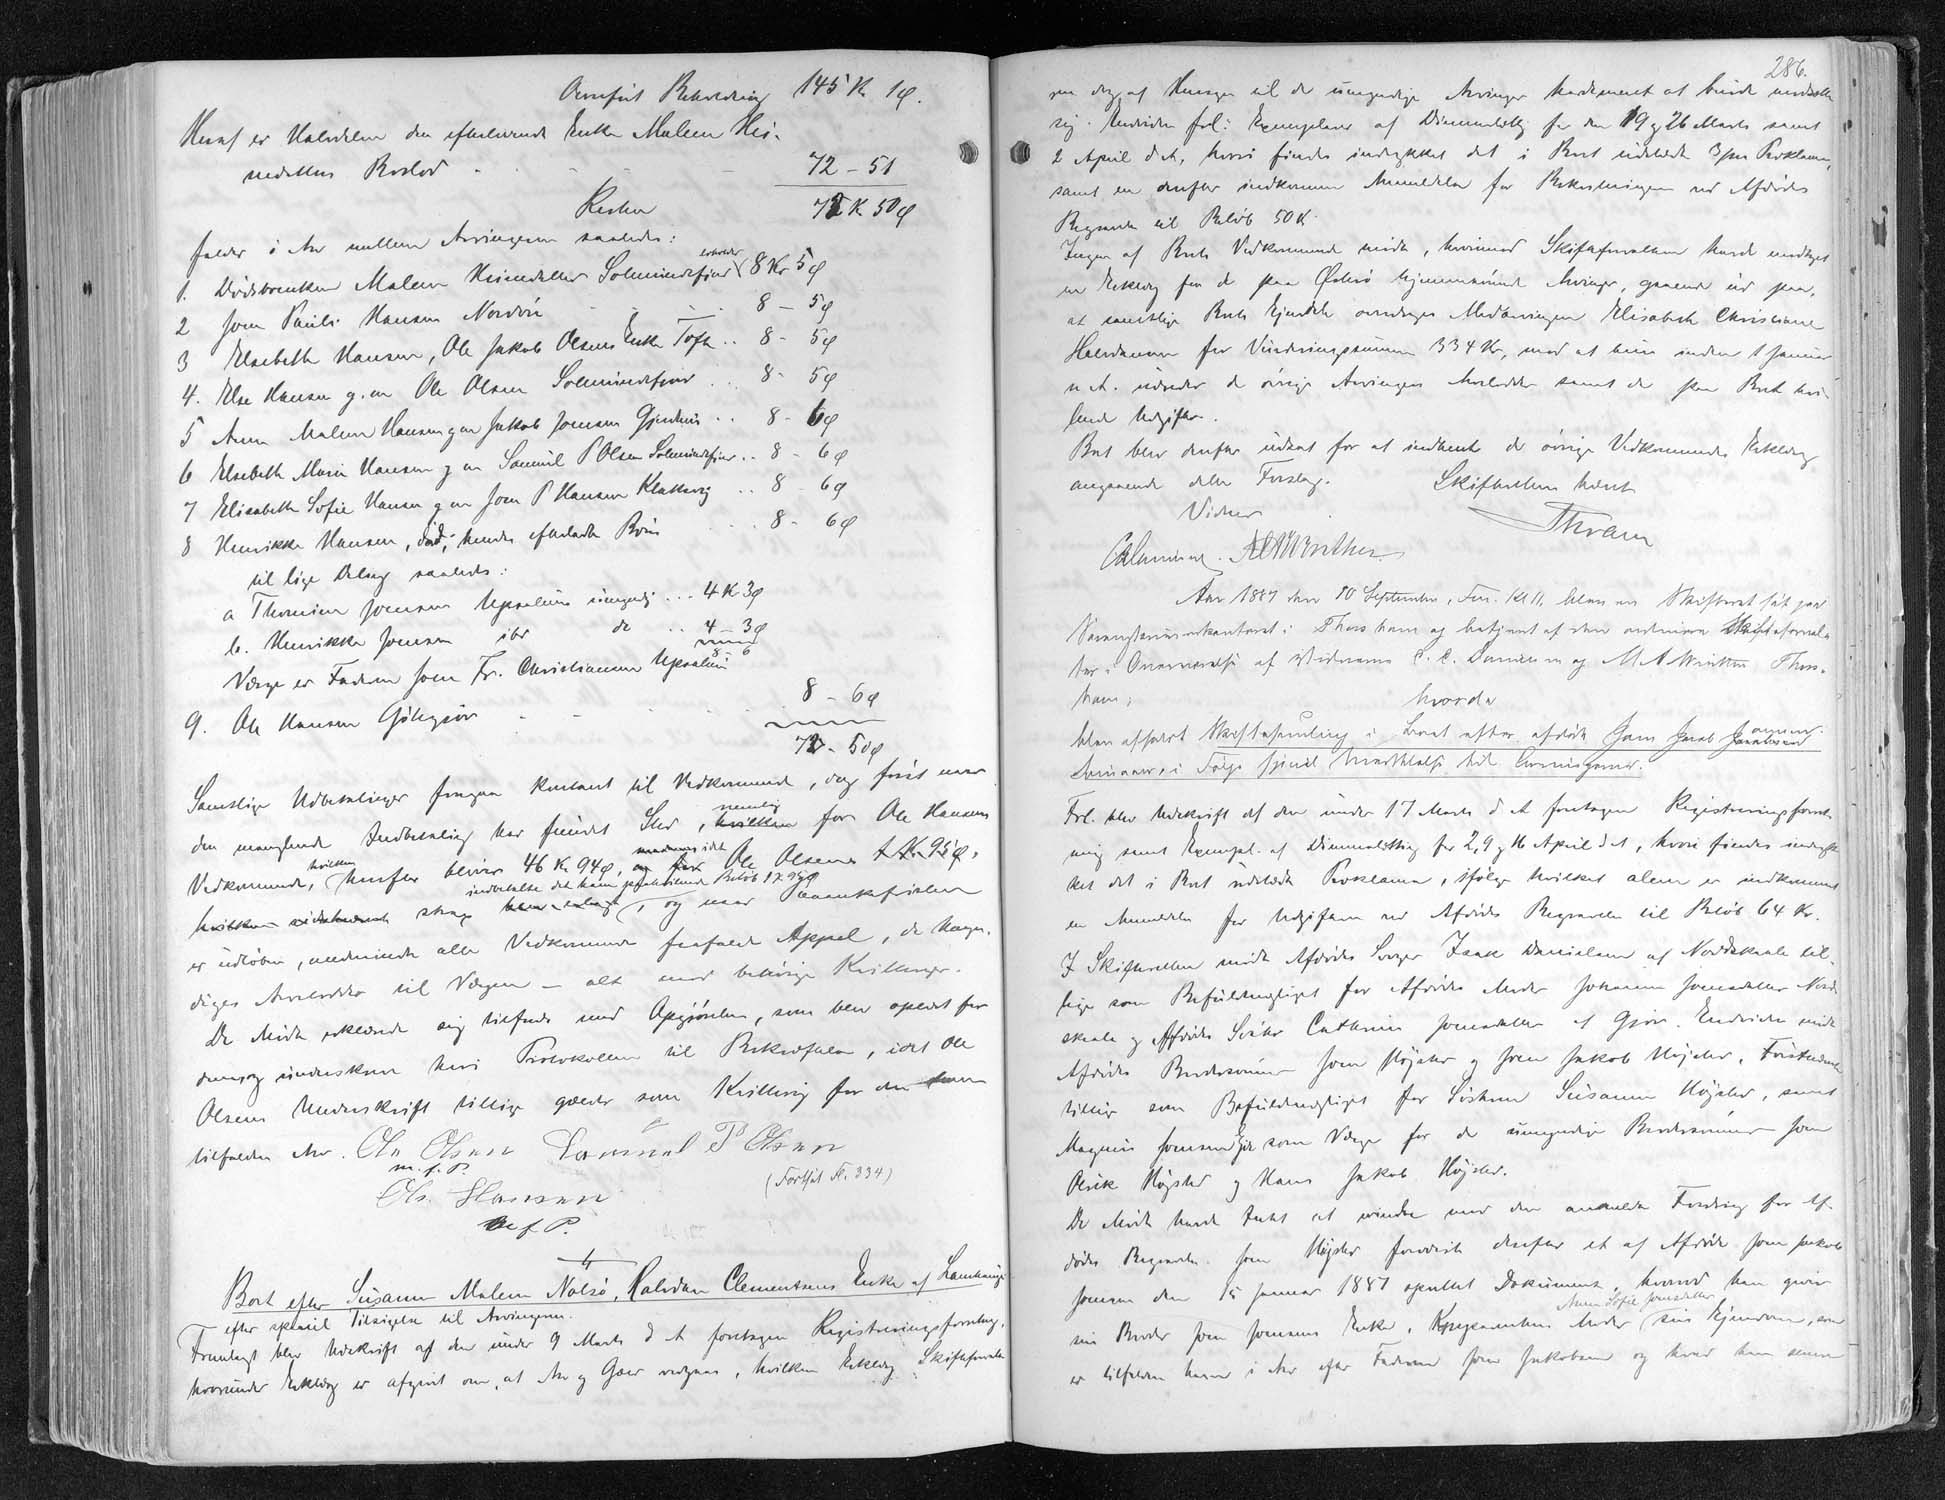 Overført Beholdning 145 K 1 φ.
Heraf er Halvdelen den efterlevende Enke Malene Hei-
nedatters Boslod 72 - 51
Resten 72 K 50 φ
falder i Arv mellem Arvingerne saaledes:
1. Malene Heinedatter Solmundefjord erholder 8 Kr 5 φ
2 Joen Pauli Hansen Nordøre 8 - 5 φ
3 Elsebeth Hansen, Ole Jakob Olsens Enke Tofte .. 8 - 5 φ
4. Else Hansen g. m. Ole Olsen Solmundefjord .. 8 - 5 φ
5 Anna Malene Hansen g m Jakob Joensen .. 8 - 6 φ
6 Elsebeth Marie Hansen g m Samuel P Olsen Solmundefjor .. 8 - 6 φ
7 Elisabeth Sofie Hansen g m Joen P Hansen Klaksvig .. 8 - 6 φ
8 Henrikke Hansen, død, hendes efterladte Børn .. 8 - 6 φ
til lige Deling saaledes:
a Thomine Joensen umyndig ... 4 K 3 φ
b. Henrikke Joensen ibd do .. 4 - 3 φ
8 - 6
Værge er Faderen Joen Fr. Christiansen
8 - 6 φ
9. Ole Hansen
72 - 50 φ
Samtlige Udbetalinger foregaa kontant til Vedkommende, dog først naar
den manglende Indbetaling har fundet Sted, hvilken nemlig for Ole Hansens
Vedkommende, hvilken herefter bliver 46 Kr 94 φ, og for medens idet Ole Olsens 17 K 95 φ,
indbetalte det ham Beløb 17 95 φ
straks, og naar Ankefristen
er udløben, medmindre alle Vedkommende frafalde Appel, de Umyn-
diges Arvelodder til Værgen - alt mod behørige Kvitteringer.
De Mødte erklærede sig tilfreds med Opgjørelsen, som blev oplæst for
dem og underskreve heri Protokollen til Bekræftelse, idet Ole
Olsens Underskrift tillige gælder som Kvittering for den ham
tilfaldne Arv. Ole Olsen Samuel P Olsen
m. f. P.
(Fortsat F. 334)
Ole Hansen
m f. P.
Boet efter Susanne Malene Nolsø, Halvdan Clementsens Enke af Lamhauge
efter speciel Tilsigelse til Arvingerne.
Fremlagt blev Udskrift af den under 9 Marts d A foretagen Registreringsforretng.
hvorunder Erklærg er afgivet om, at Arv og Gæld vedgaas, hvilken Erklærg Skifteforvalte
286.
ren dog af Hensyn til de umyndige Arvinger havde ment at burde modsætte
sig. Endvidere frl: Exemplarer af Dimmalætting for den 19 & 26 Marts samt
2 April d A, hvori findes indrykket det i Boet udstedte 3/m Proklama,
samt en derefter indkommen Anmeldelse for Bekostningen ved Afdødes
Begravelse til Beløb 50 K.
Ingen af Boets Vedkommende mødte, hvorimod Skifteforvalteren havde modtaget
en Erklærg fra de paa Østerø hjemmehørende Arvinger, gaaende ud paa,
at samtlige Boets Ejendele overdrages Medarvingen Elisabeth Christiane
Halvdansen for Vurderingssummen 334 Kr, mod at hun inden 1 Januar
n A. udreder de øvrige Arvinger Arvelodder samt de paa Boet hvi-
lende Udgifter.
Boet blev derefter udsat for at indhente de øvrige Vedkommendes Erklærg
angaaende dette Forslag. Skifteretten hævet
Vidner Thram
C. C. Danielsen. M A Winther
Aar 1887 den 10 September, Fm. Kl 11, blev en Skifteret sat paa
Sorenskriverkontoret i Thorshavn og betjent af den ordinære Skifteforval-
ter i Overværelse af Vidnerne C. C. Danielsen og M A Winther Thors-
havn;
hvorda
blev afholdt Skiftesamling i Boet efter afdøde Joen Jacob Joensen
i Følge speciel Indkaldelse til Arvingerne.
Frl. blev Udskrift af den under 17 Marts d A foretagen Registreringsforret-
ning samt Exempl. af Dimmalætting for 2, 9 & 16 April d A, hvori findes indryk-
ket det i Boet udstedte Proklama, ifølge hvilket alene er indkommet
en Anmeldelse for Udgifterne ved Afdødes Begravelse til Beløb 64 Kr.
I Skifteretten mødte Afdødes Svoger Isak Danielsen af Nordskaale til-
lige som Befuldmægtiget for Afdødes Moder Johanne Joensdatter Nord-
skaale og Afdødes Søster Cathrine Joensdatter af Gjov. Endvidere mødte
Afdødes Brodersønner Joen Højsted og Joen Jakob Højsted, Førstnævnte
tillige som Befuldmægtiget for Søsteren Susanne Højsted, samt
Magnus Joensen Eide som Værge for de umyndige Brodersønner Joen
Olrik Højsted og Hans Jakob Højsted.
De Mødte havde Intet at erindre mod den anmeldte Fordring for Af-
dødes Begravelse. Joen Højsted foreviste derefter et af Afdøde Joen Jakob
Joensen den 15 Januar 1887 oprettet Dokument, hvorved han giver
sin Broder Joen Joensens Enke, Komparentens Moder Anna Sofie Joensdatter sin Ejendom, som
er tilfalden ham i Arv efter Faderen Joen Jakobsen og hvad han senere